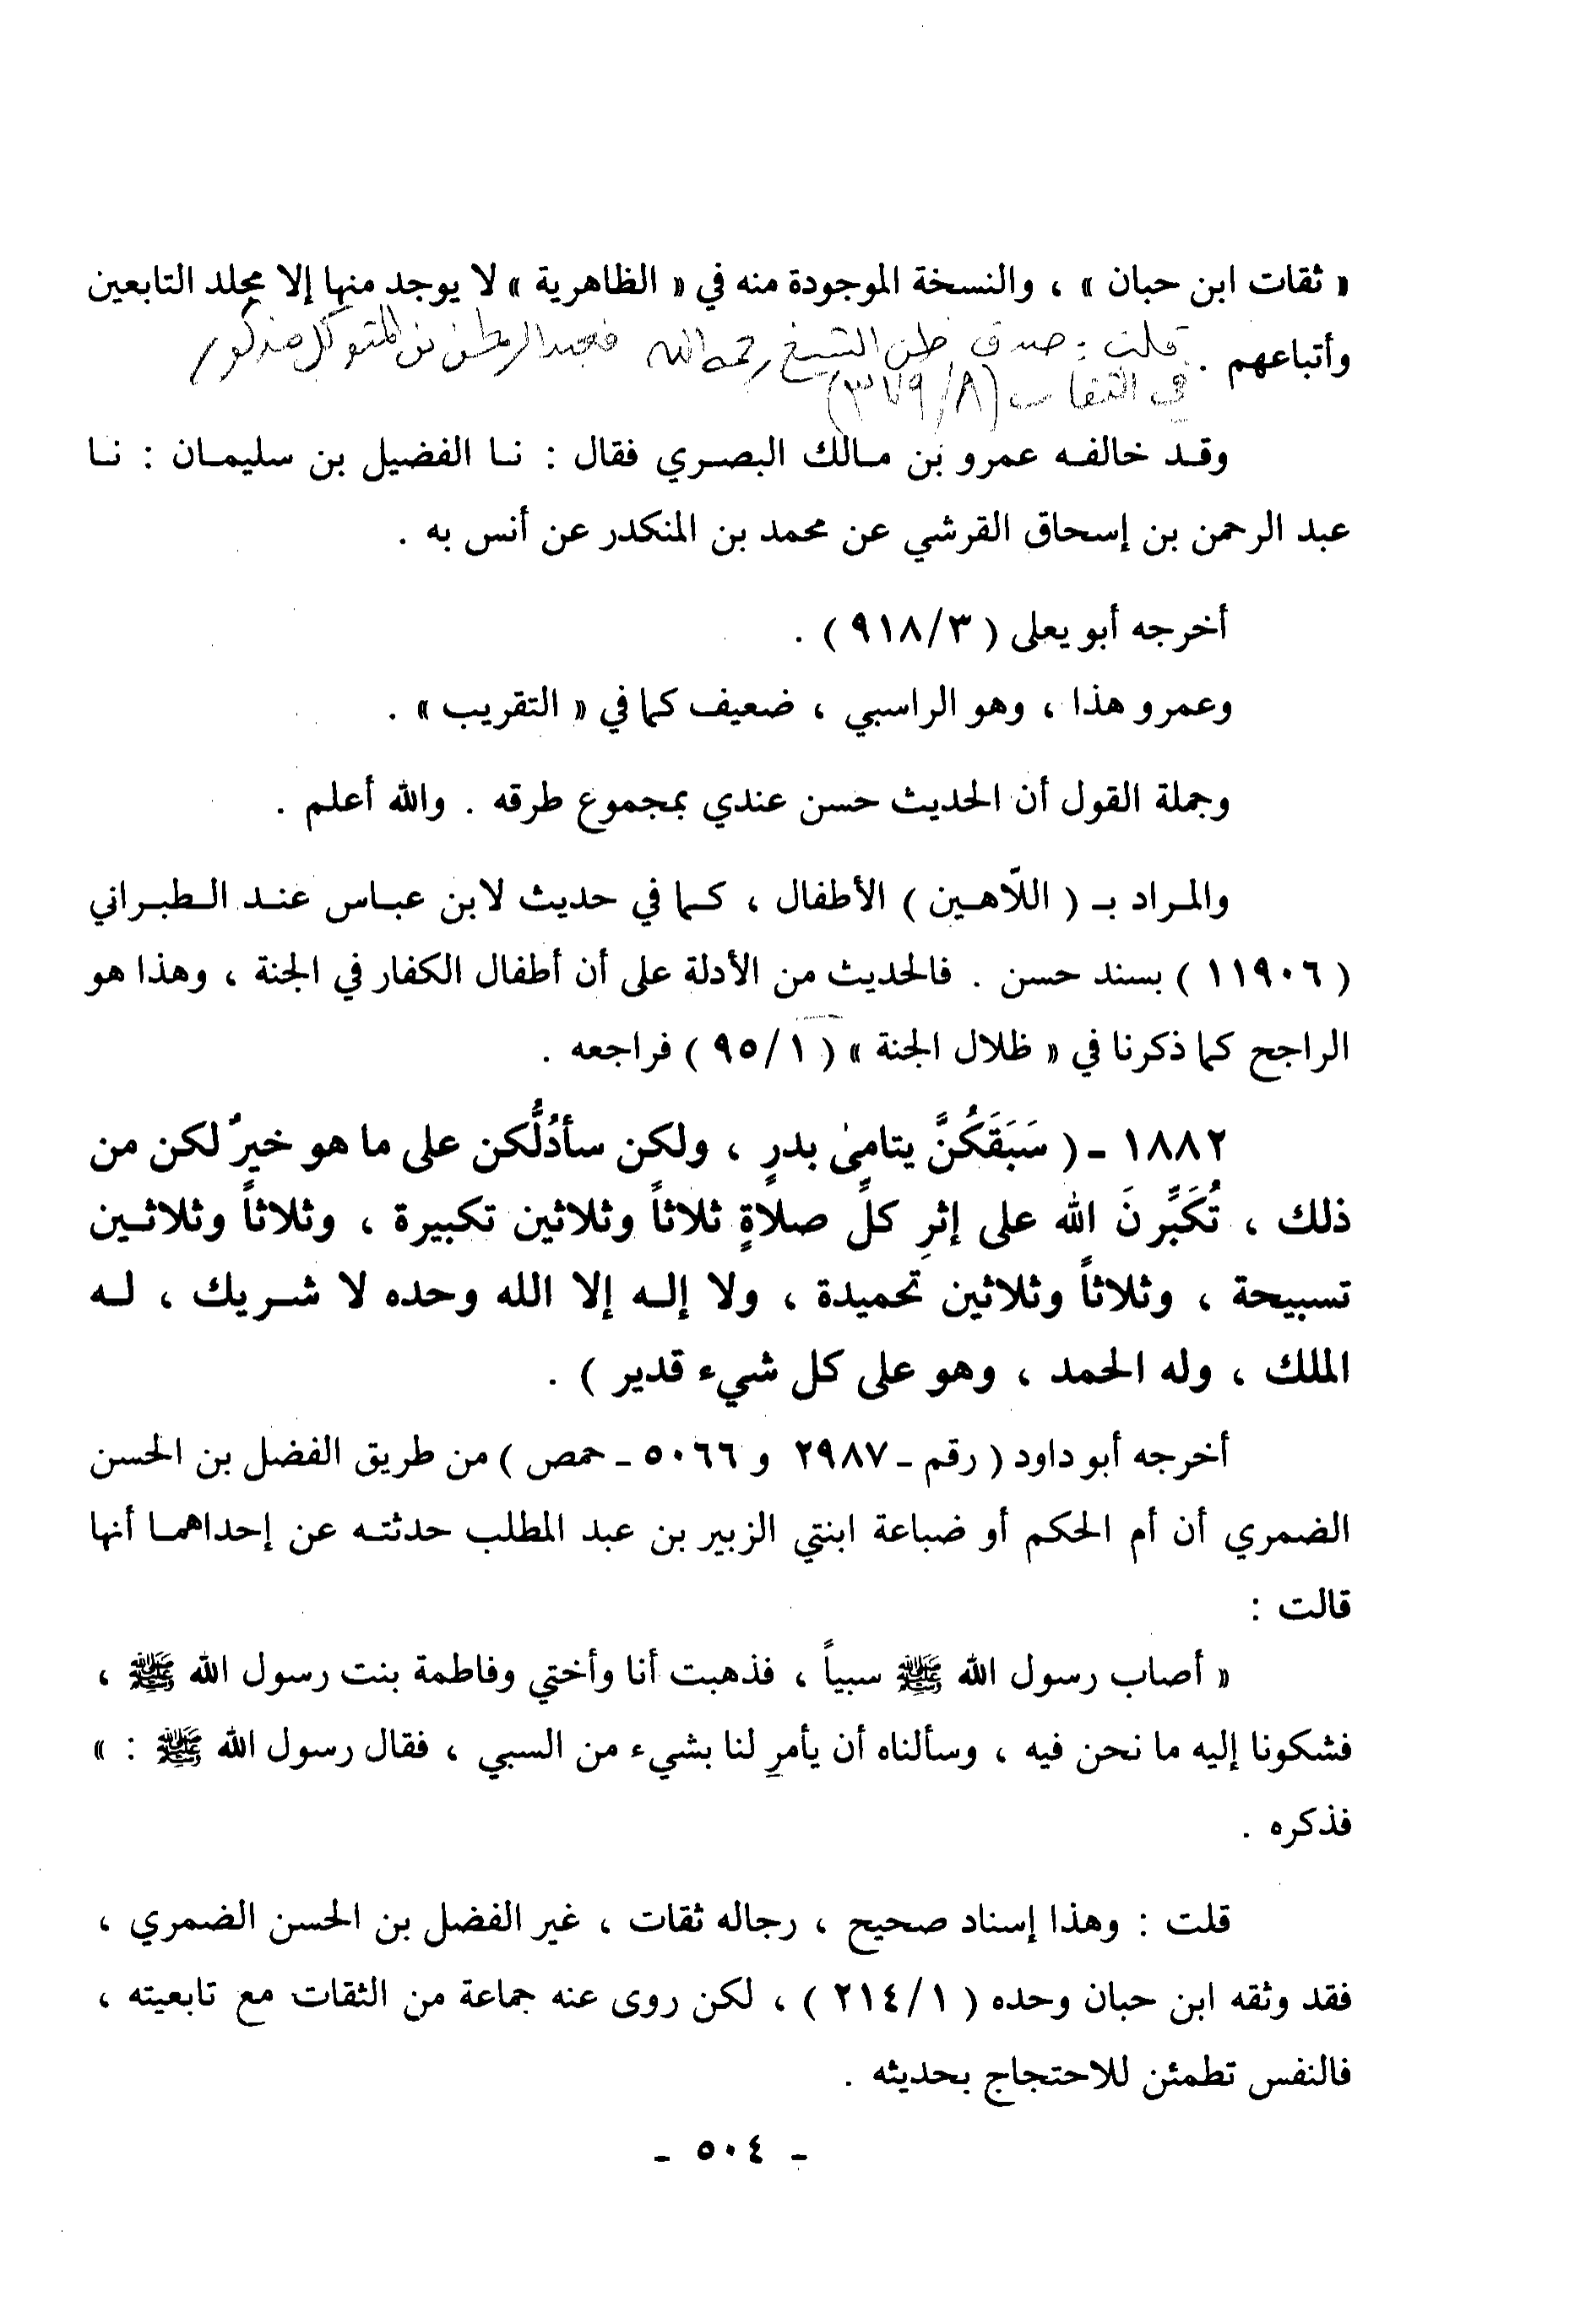 « ثقات ابن حبان » ، والنسخة الموجودة منه في « الظاهرية » لا يوجد منها إلا مجلد التابعين
وأتباعهم .
قلت : صدق ظن الشيخ رحمه الله فعبد الرحمن بن المتوكل مذكور
في الثقات (٣٧٩/٨)
وقـد خالفـه عمرو بن مـالك البصـري فقال : نـا الفضيل بن سليمـان : نـا
عبد الرحمن بن إسحاق القرشي عن محمد بن المنكدر عن أنس به .
أخرجه أبو يعلى ( ٩١٨/٣ ) .
وعمرو هذا ، وهو الراسبي ، ضعيف كما في « التقريب » .
وجملة القول أن الحديث حسن عندي بمجموع طرقه . والله أعلم .
والمـراد بـ ( اللّاهـين ) الأطفال ، كـما في حديث لابن عبـاس عنـد الـطبـراني
( ١١٩٠٦ ) بسند حسن . فالحديث من الأدلة على أن أطفال الكفار في الجنة ، وهذا هو
الراجح كما ذكرنا في « ظلال الجنة » ( ٩٥/١ ) فراجعه .
١٨٨٢ - ( سَبَقَكُنَّ يتامىٰ بدرٍ ، ولكن سأدُلُّكن على ما هو خيرٌ لكن من
ذلك ، تُكَبِّرنَ الله على إثرِ كلِّ صلاةٍ ثلاثاً وثلاثين تكبيرة ، وثلاثاً وثلاثـين
تسبيحة ، وثلاثاً وثلاثين تحميدة ، ولا إلـه إلا الله وحده لا شـريك ، لـه
الملك ، وله الحمد ، وهو على كل شيء قدير ) .
أخرجه أبو داود ( رقم - ٢٩٨٧ و ٥٠٦٦ - حمص ) من طريق الفضل بن الحسن
الضمري أن أم الحكم أو ضباعة ابنتي الزبير بن عبد المطلب حدثتـه عن إحداهمـا أنها
قالت :
« أصاب رسول الله ﷺ سبياً ، فذهبت أنا وأختي وفاطمة بنت رسول الله ﷺ ،
فشكونا إليه ما نحن فيه ، وسألناه أن يأمر لنا بشيء من السبي ، فقال رسول الله ﷺ : »
فذكره .
قلت : وهذا إسناد صحيح ، رجاله ثقات ، غير الفضل بن الحسن الضمري ،
فقد وثقه ابن حبان وحده ( ٢١٤/١ ) ، لكن روى عنه جماعة من الثقات مع تابعيته ،
فالنفس تطمئن للاحتجاج بحديثه .
- ٥٠٤ -